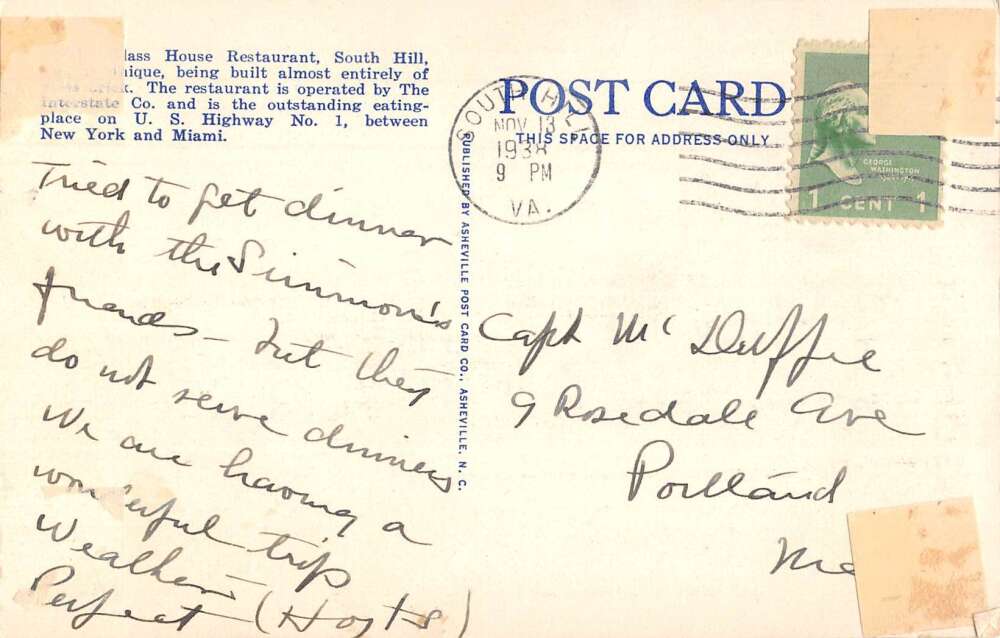 lass House Restaurant, South Hill,
nique, being built almost entirely of
The restaurant is operated by The
Interstate Co. and is the outstanding eating-
place on U. S. Highway No. 1, between
New York and Miami.
Tried to get dinner
with the Simmon's
friends - but they
do not serve dinners
We are having a
wonderful trip
Weather
Perfect (Hosts)
PUBLISHED BY ASHEVILLE POST CARD CO., ASHEVILLE, N. C.
POST CARD
THIS SPACE FOR ADDRESS ONLY
SOUTH HILL
NOV 13
1938
9 PM
VA.
GEORGE
WASHINGTON
1 CENT 1
Capt Mc Duffie
9 Rosedale Ave
Portland
Me